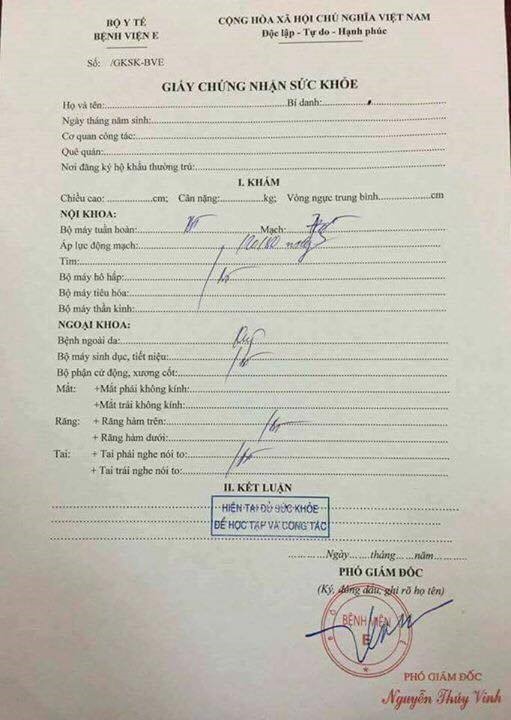 BỘ Y TẾ
BỆNH VIỆN E
CỘNG HÒA XÃ HỘI CHỦ NGHĨA VIỆT NAM
Độc lập - Tự do - Hạnh phúc
Số: /GKSK-BVE
GIẤY CHỨNG NHẬN SỨC KHỎE
Họ và tên: Bí danh:
Ngày tháng năm sinh:
Cơ quan công tác:
Quê quán:
Nơi đăng ký hộ khẩu thường trú:
I. KHÁM
Chiều cao: cm; Cân nặng: kg; Vòng ngực trung bình cm
NỘI KHOA:
Bộ máy tuần hoàn: Mạch:
Áp lực động mạch: 120/80
Tim:
Bộ máy hô hấp:
Bộ máy tiêu hóa:
Bộ máy thần kinh:
NGOẠI KHOA:
Bệnh ngoài da:
Bộ máy sinh dục, tiết niệu:
Bộ phận cử động, xương cốt:
Mắt: +Mắt phải không kính:
+Mắt trái không kính:
Răng: + Răng hàm trên:
+ Răng hàm dưới:
Tai: + Tai phải nghe nói to:
+ Tai trái nghe nói to:
II. KẾT LUẬN
HIỆN TẠI ĐỦ SỨC KHỎE
ĐỂ HỌC TẬP VÀ CÔNG TÁC
Ngày tháng năm
PHÓ GIÁM ĐỐC
(Ký, đóng dấu, ghi rõ họ tên)
BỆNH VIỆN
E
PHÓ GIÁM ĐỐC
Nguyễn Thúy Vinh